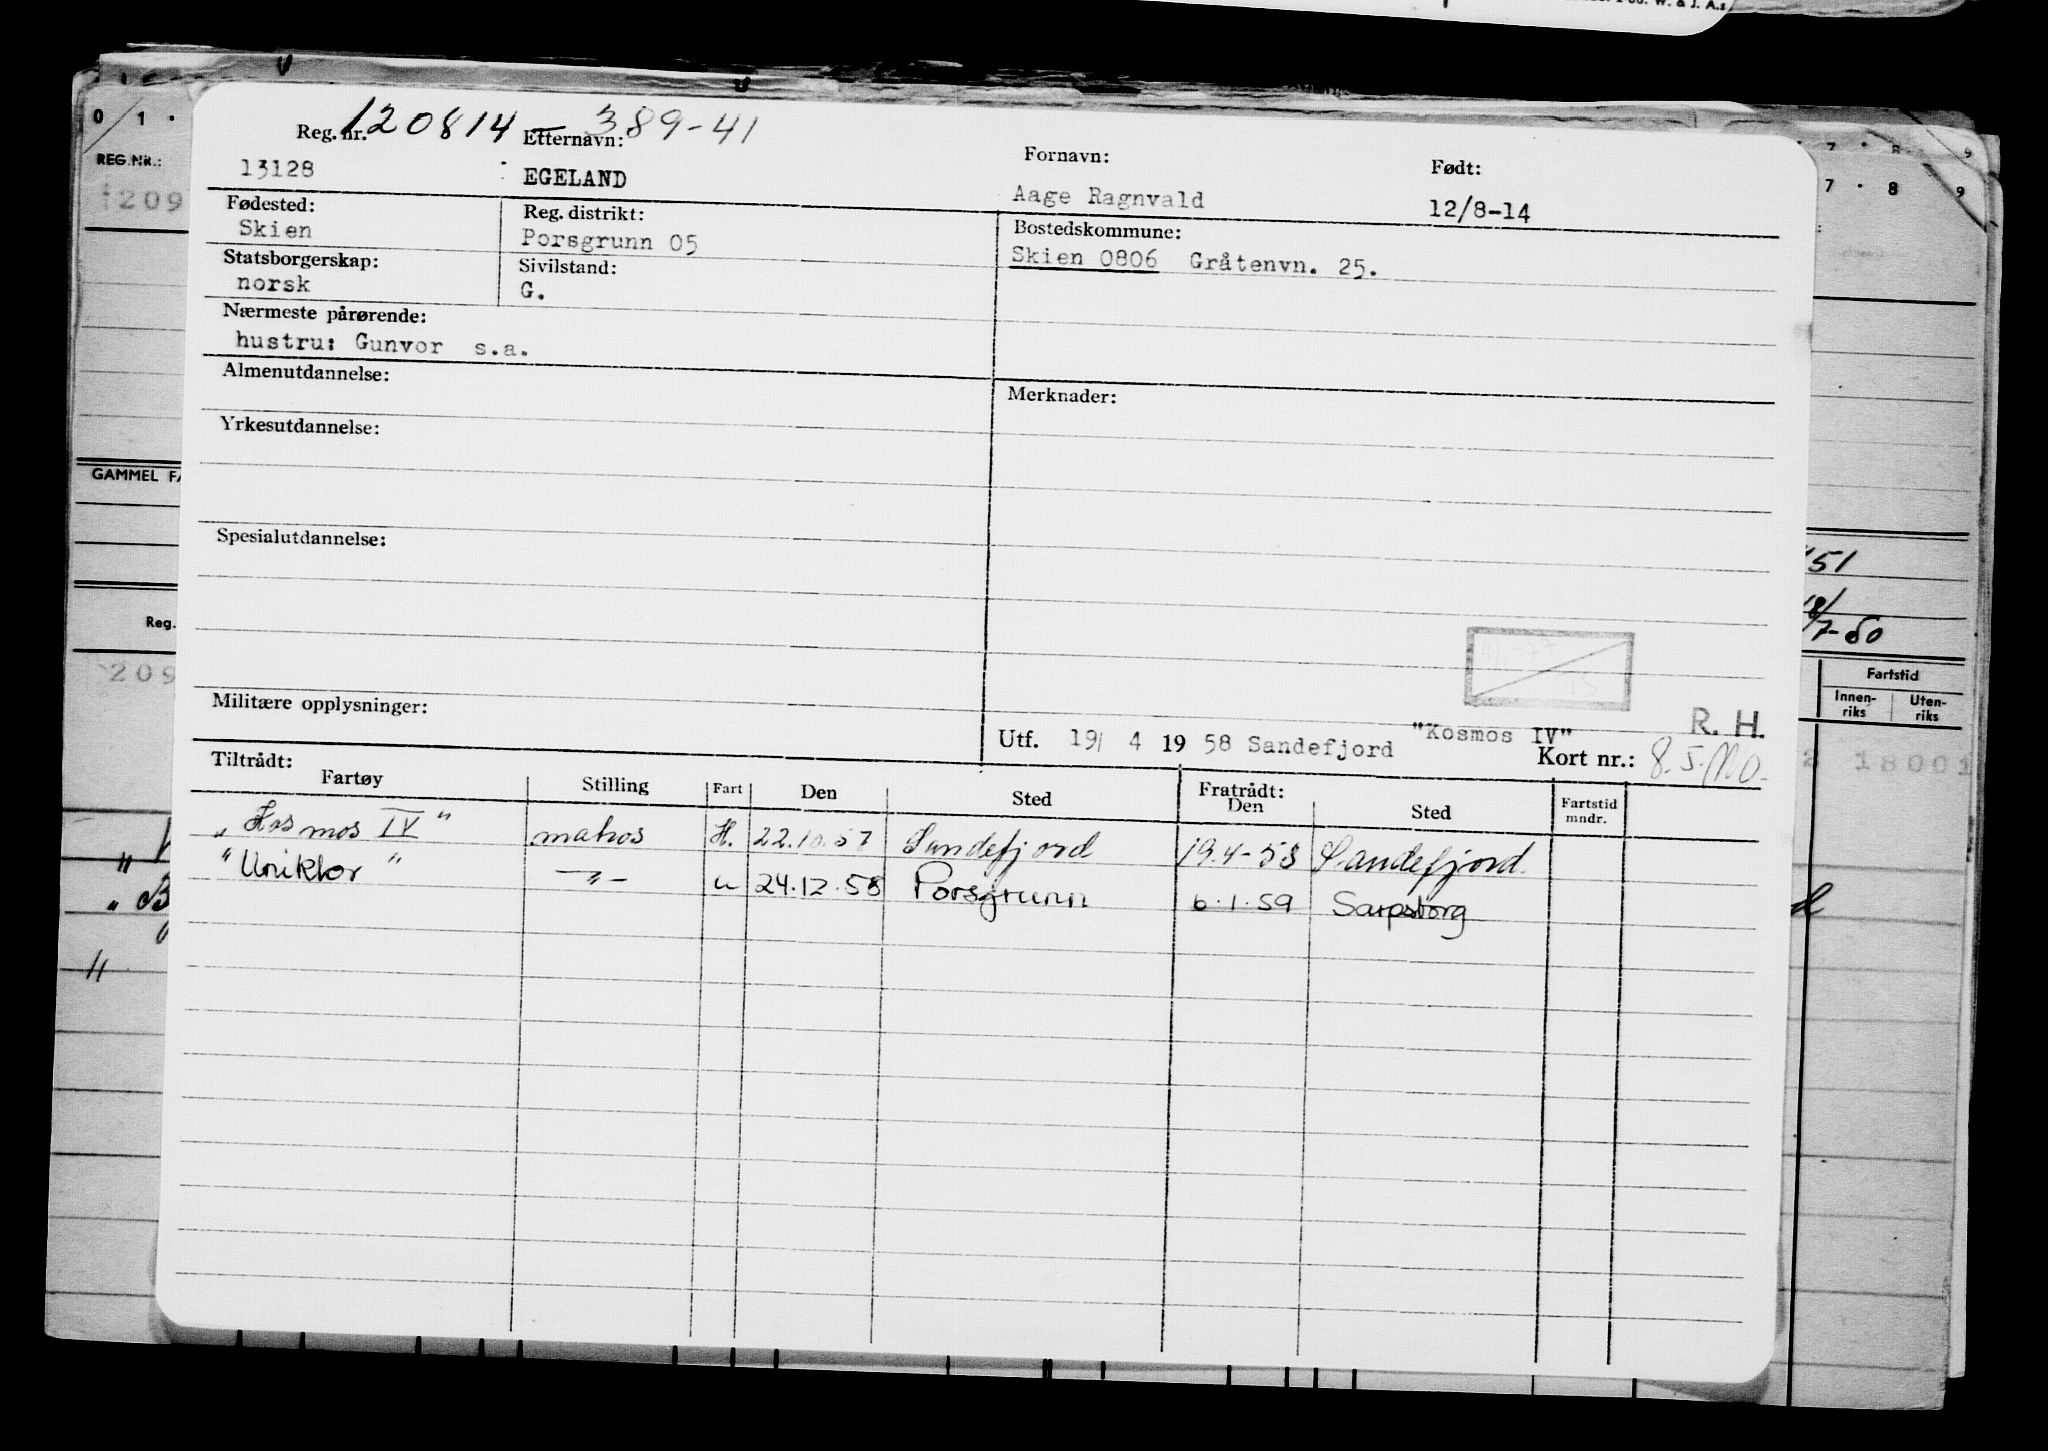 120814 - 389-41
Reg. nr. Etternavn: Fornavn: Født:
13128 EGELAND Aage Ragnvald 12/8-14
Fødested: Reg. distrikt: Bostedskommune:
Skien Porsgrunn 05 Skien 0806 Gråtenvn. 25.
Statsborgerskap: Sivilstand:
norsk G.
Nærmeste pårørende:
hustru: Gunvor s.a.
Almenutdannelse: Merknader:
Yrkesutdannelse:
Spesialutdannelse:
Militære opplysninger:
R. H.
Utf. 19/ 4 19 58 Sandefjord "Kosmos IV" Kort nr.:
Tiltrådt: Fratrådt:
Fartøy Stilling Fart Den Sted Den Sted Fartstid mndr.
"Kosmos IV" matros H. 22.10.57 Sandefjord 19.4-58 Sandefjord.
"Uniklor" -"- u 24.12.58 Porsgrunn 6.1.59 Sarpsborg
0 1 .
REG.NR.:
1209
GAMMEL
Reg.
209
7 . 8 9
7 . 8 9
/51
18/7-50
Fartstid
Innen-riks Uten-riks
18001